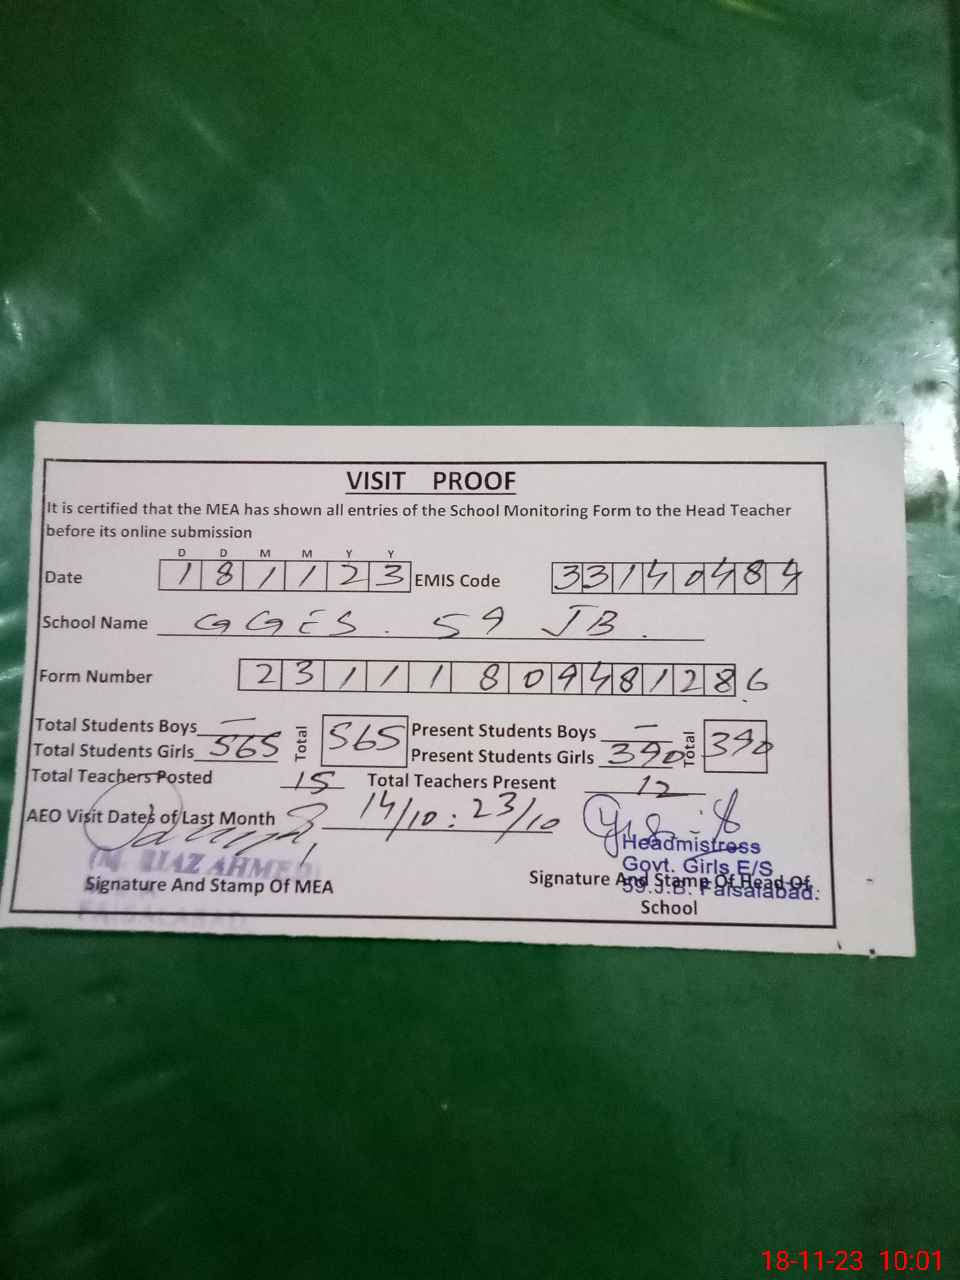 VISIT PROOF
It is certified that the MEA has shown all entries of the School Monitoring Form to the Head Teacher
before its online submission
D D M M Y Y
Date 1 8 1 1 2 3 EMIS Code 3 3 1 4 0 4 8 4
School Name GGES. 59 JB.
Form Number 2 3 1 1 1 8 0 9 4 8 1 2 8 6
Total Students Boys — Total 565 Present Students Boys — Total 390
Total Students Girls 565 Present Students Girls 390
Total Teachers Posted 15 Total Teachers Present 12
AEO Visit Dates of Last Month 14/10 : 23/10
Headmistress
Govt. Girls E/S
59.J.B. Faisalabad.
RIAZ AHMED
Signature And Stamp Of MEA
FAISALABAD
Signature And Stamp Of Head Of
School
18-11-23 10:01